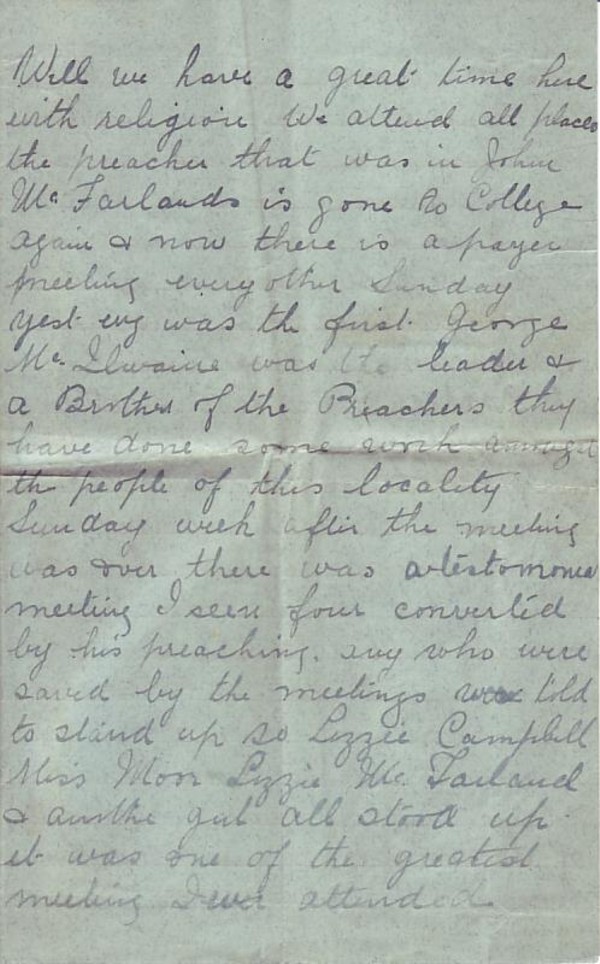 Well we have a great time here
with religion We attend all places
the preacher that was in John
Mc Farlands is gone to College
again & now there is a payer
meeting every other Sunday
yest evg was the first. George
Mc Ilwaine was the leader &
a Brother of the Preachers they
have done some work amongst
the people of this locality
Sunday week after the meeting
was over there was a testomonea
meeting I seen four converted
by his preaching. any who were
saved by the meetings were told
to stand up so Lizzie Campbell
Miss Moor Lizzie Mc Farland
& another girl all stood up.
it was one of the greatest
meeting I ever attended